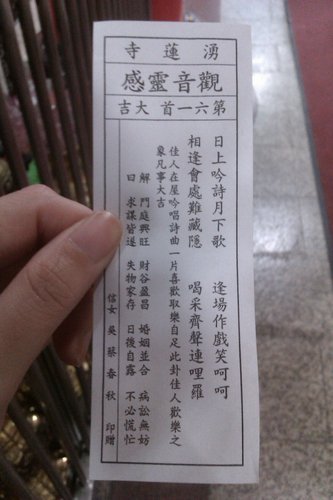 湧蓮寺
觀音靈感
第六一首 大吉
日上吟詩月下歌 逢場作戲笑呵呵
相逢會處難藏隱 喝采齊聲連哩羅
佳人在屋吟唱詩曲一片喜歡取樂自足此卦佳人歡樂之
象凡事大吉
解 門庭興旺 財谷盈昌 婚姻並合 病訟無妨
曰 求謀皆遂 失物家存 日後自露 不必慌忙
信女 吳蔡春秋 印贈